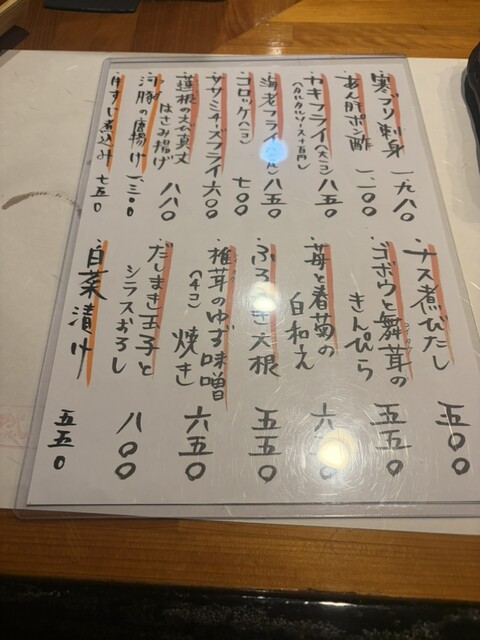 ・寒ブリ刺身 一、九八〇
・あん肝ポン酢 一、一〇〇
・カキフライ(大二コ) 八五〇
(タルタルソース+百円)
・海老フライ 八五〇
・コロッケ(一コ) 七〇〇
・ササミチーズフライ 六〇〇
・蓮根の
はさみ揚げ 八八〇
・河豚の唐揚げ 一、三〇〇
・牛すじ煮込み 七五〇
・ナス煮びたし 五〇〇
・ゴボウと舞茸の
きんぴら 五五〇
・苺と春菊の
白和え 六
・ふろ 大根 五五〇
・椎茸のゆず味噌
(4コ) 焼き 六五〇
・だしまき玉子と
シラスおろし 八〇〇
・白菜漬け 五五〇